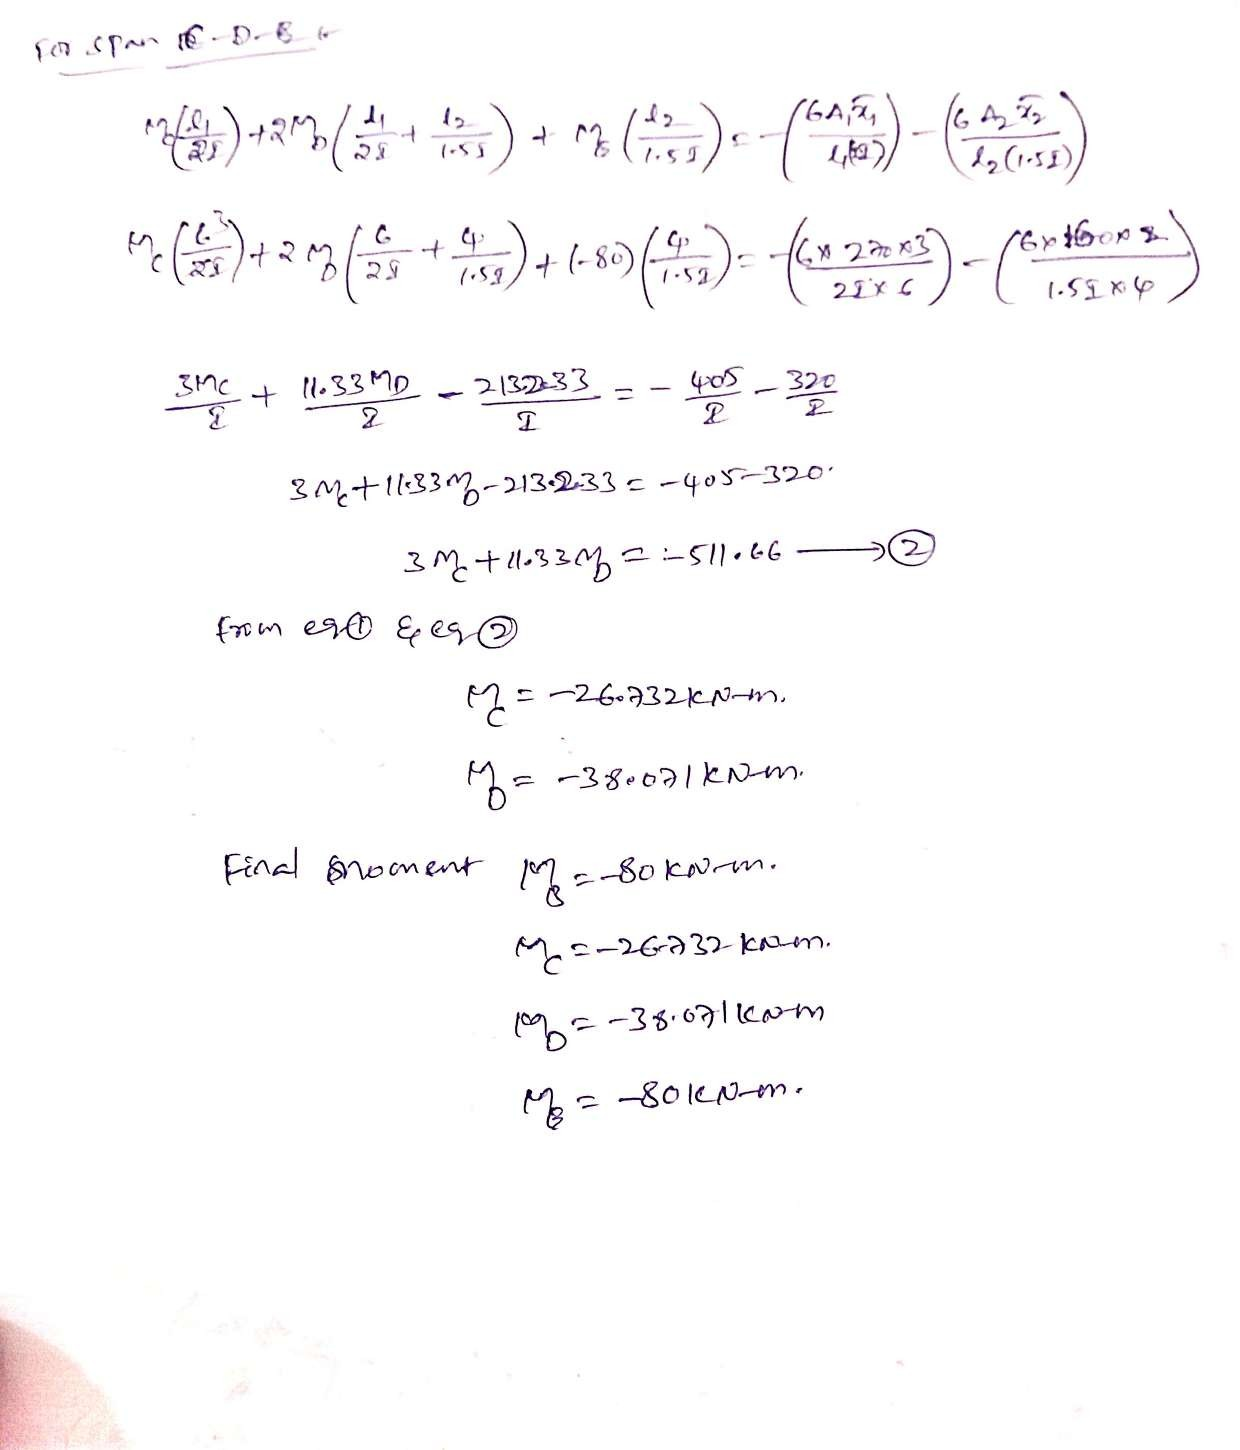 For span C-D-E
M_C(l₁/2I) + 2M_D(l₁/2I + l₂/1.5I) + M_E(l₂/1.5I) = -(6A₁x̄₁/l₁(2I)) - (6A₂x̄₂/l₂(1.5I))
M_C(6/2I)³ + 2M_D(6/2I + 4/1.5I) + (-80)(4/1.5I) = -(6×270×3/2I×6) - (6×160×2/1.5I×4)
3M_C/I + 11.33M_D/I - 213.33/I = -405/I - 320/I
3M_C + 11.33M_D - 213.33 = -405-320
3M_C + 11.33M_D = -511.66 → ②
from eq① & eq②
M_C = -26.732 kN-m.
M_D = -38.071 kN-m.
Final moment M_B = -80 kN-m.
M_C = -26.732 kN-m.
M_D = -38.071 kN-m
M_E = -80 kN-m.